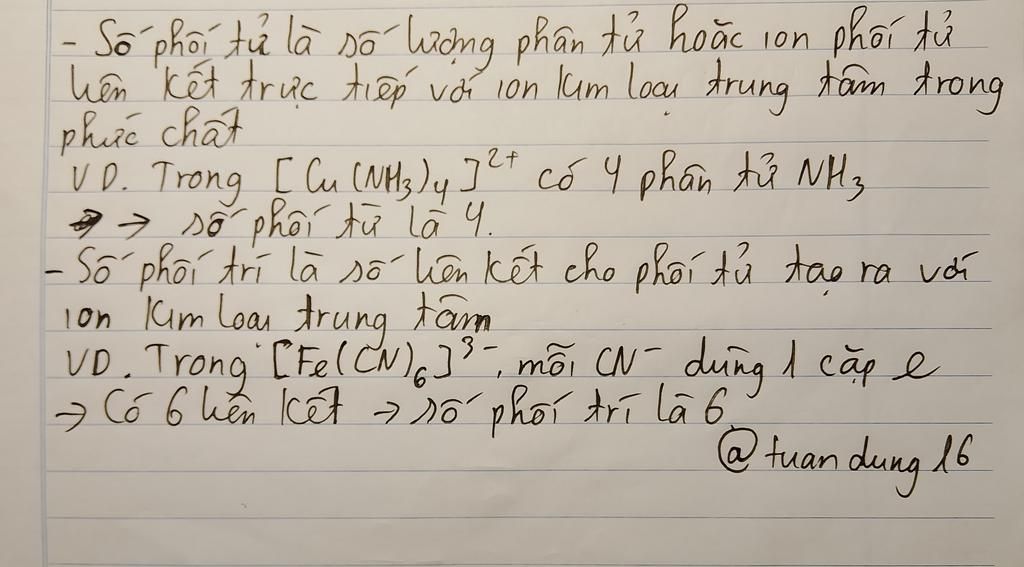 - Số phối tử là số lượng phân tử hoặc ion phối tử
liên kết trực tiếp với ion kim loại trung tâm trong
phức chất
VD. Trong [Cu(NH3)4]2+ có 4 phân tử NH3
→ số phối tử là 4.
- Số phối trí là số liên kết cho phối tử tạo ra với
ion kim loại trung tâm
VD. Trong [Fe(CN)6]3-, mỗi CN- dùng 1 cặp e
→ Có 6 liên kết → số phối trí là 6.
@tuandung16